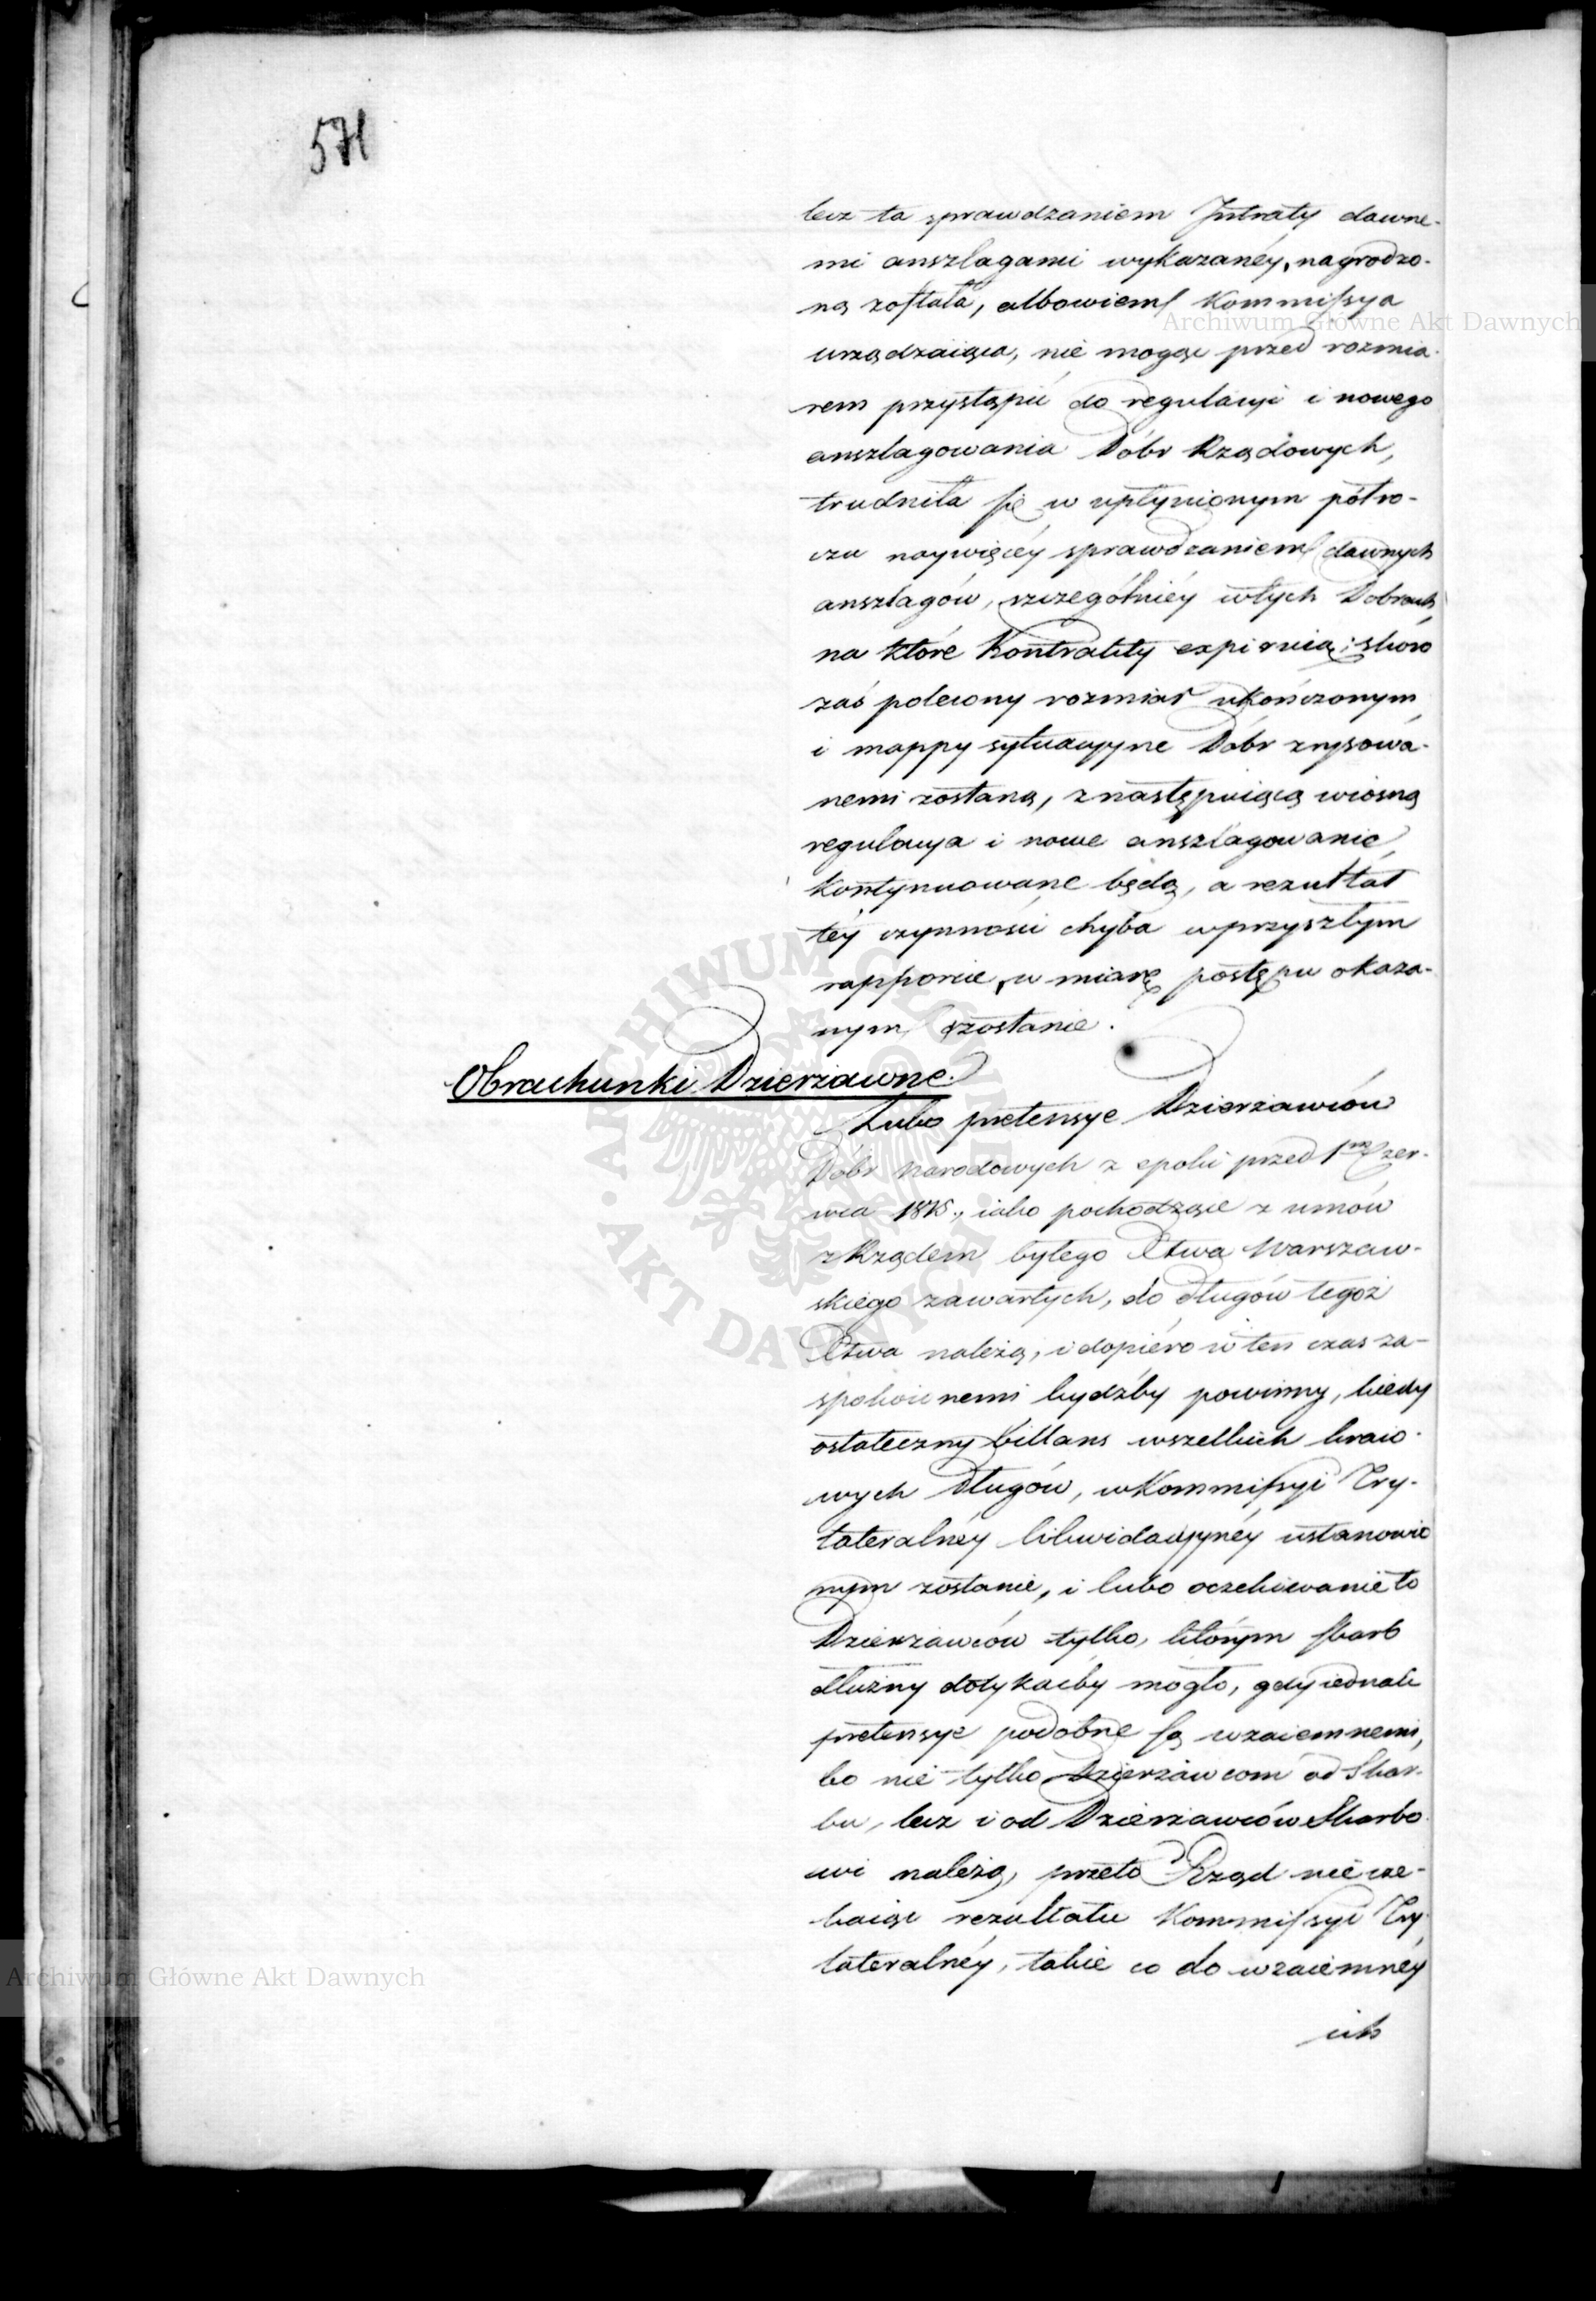 571
lecz ta sprawdzaniem Jntraty dawne-
mi anszlagami wykazanéy, nagrodzo-
ną została, albowiem Kommissya
urządzaiąca, nie mogąc przed rozmia-
rem przystąpić do regulacyi i nowego
anszlagowania Dóbr Rządowych,
trudniła się w upłynionym półro-
czu naywięcéy sprawdzaniem dawnych
anszlagów, szczególniéy wtych Dobrach,
na które Kontrakty expiruią; skoro
zaś polecony rozmiar ukończonym
i mappy sytuacyjne Dóbr zrysowa-
nemi zostaną, z następuiącą wiosną
regulacya i nowe anszlagowanie
kontynuowane będą, a rezultat
téy czynności chyba w przyszłym
rapporcie, w miarę postępu okaza-
nym zostanie.
Obrachunki Dzierżawne.
Lubo pretensye Dzierżawców
Dóbr Narodowych z epoki przed 1m Czer-
wca 1815., iako pochodzące z umów
z Rządem byłego Xtwa Warszaw-
skiego zawartych, do długów tegoż
Xtwa należą, i dopiéro w ten czas za-
spokoionemi bydźby powinny, kiedy
ostateczny billans wszelkich kraio-
wych długów, w Kommissyi Try-
lateralnéy likwidacyjnéy ustanowio
nym zostanie, i lubo oczekiwanie to
Dzierżawców tylko, którym skarb
dłużny dotykaćby mogło, gdy iednak
pretensye podobne są wzaiemnemi,
bo nie tylko Dzierżawcom od Skar-
bu, lecz i od Dzierżawców Skarbo
wi należą, przeto Rząd nie cze-
kaiąc rezultatu Kommissyi Try-
lateralnéy, takie co do wzaiemnéy
ich
Archiwum Główne Akt Dawnych
Archiwum Główne Akt Dawnych
ARCHIWUM GŁÓWNE AKT DAWNYCH